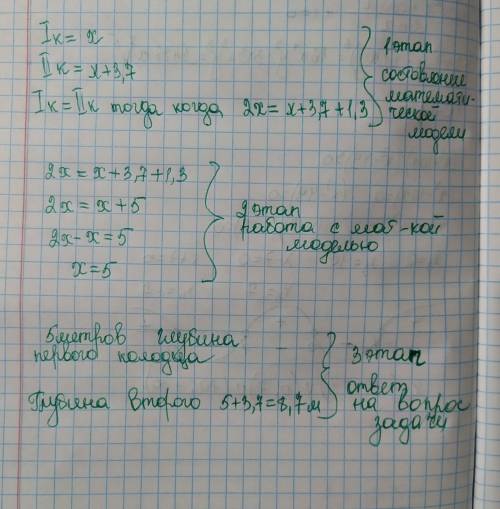 Iк = x
IIк = x+3,7
Iк = IIк тогда когда 2x = x+3,7+1,3
1 этап
составление
математи-
ческой
модели
2x = x+3,7+1,3
2x = x+5
2x-x=5
x=5
2 этап
работа с мат-кой
моделью
5 метров глубина
первого колодца
Глубина второго 5+3,7=8,7м
3 этап
ответ
на вопрос
задачи